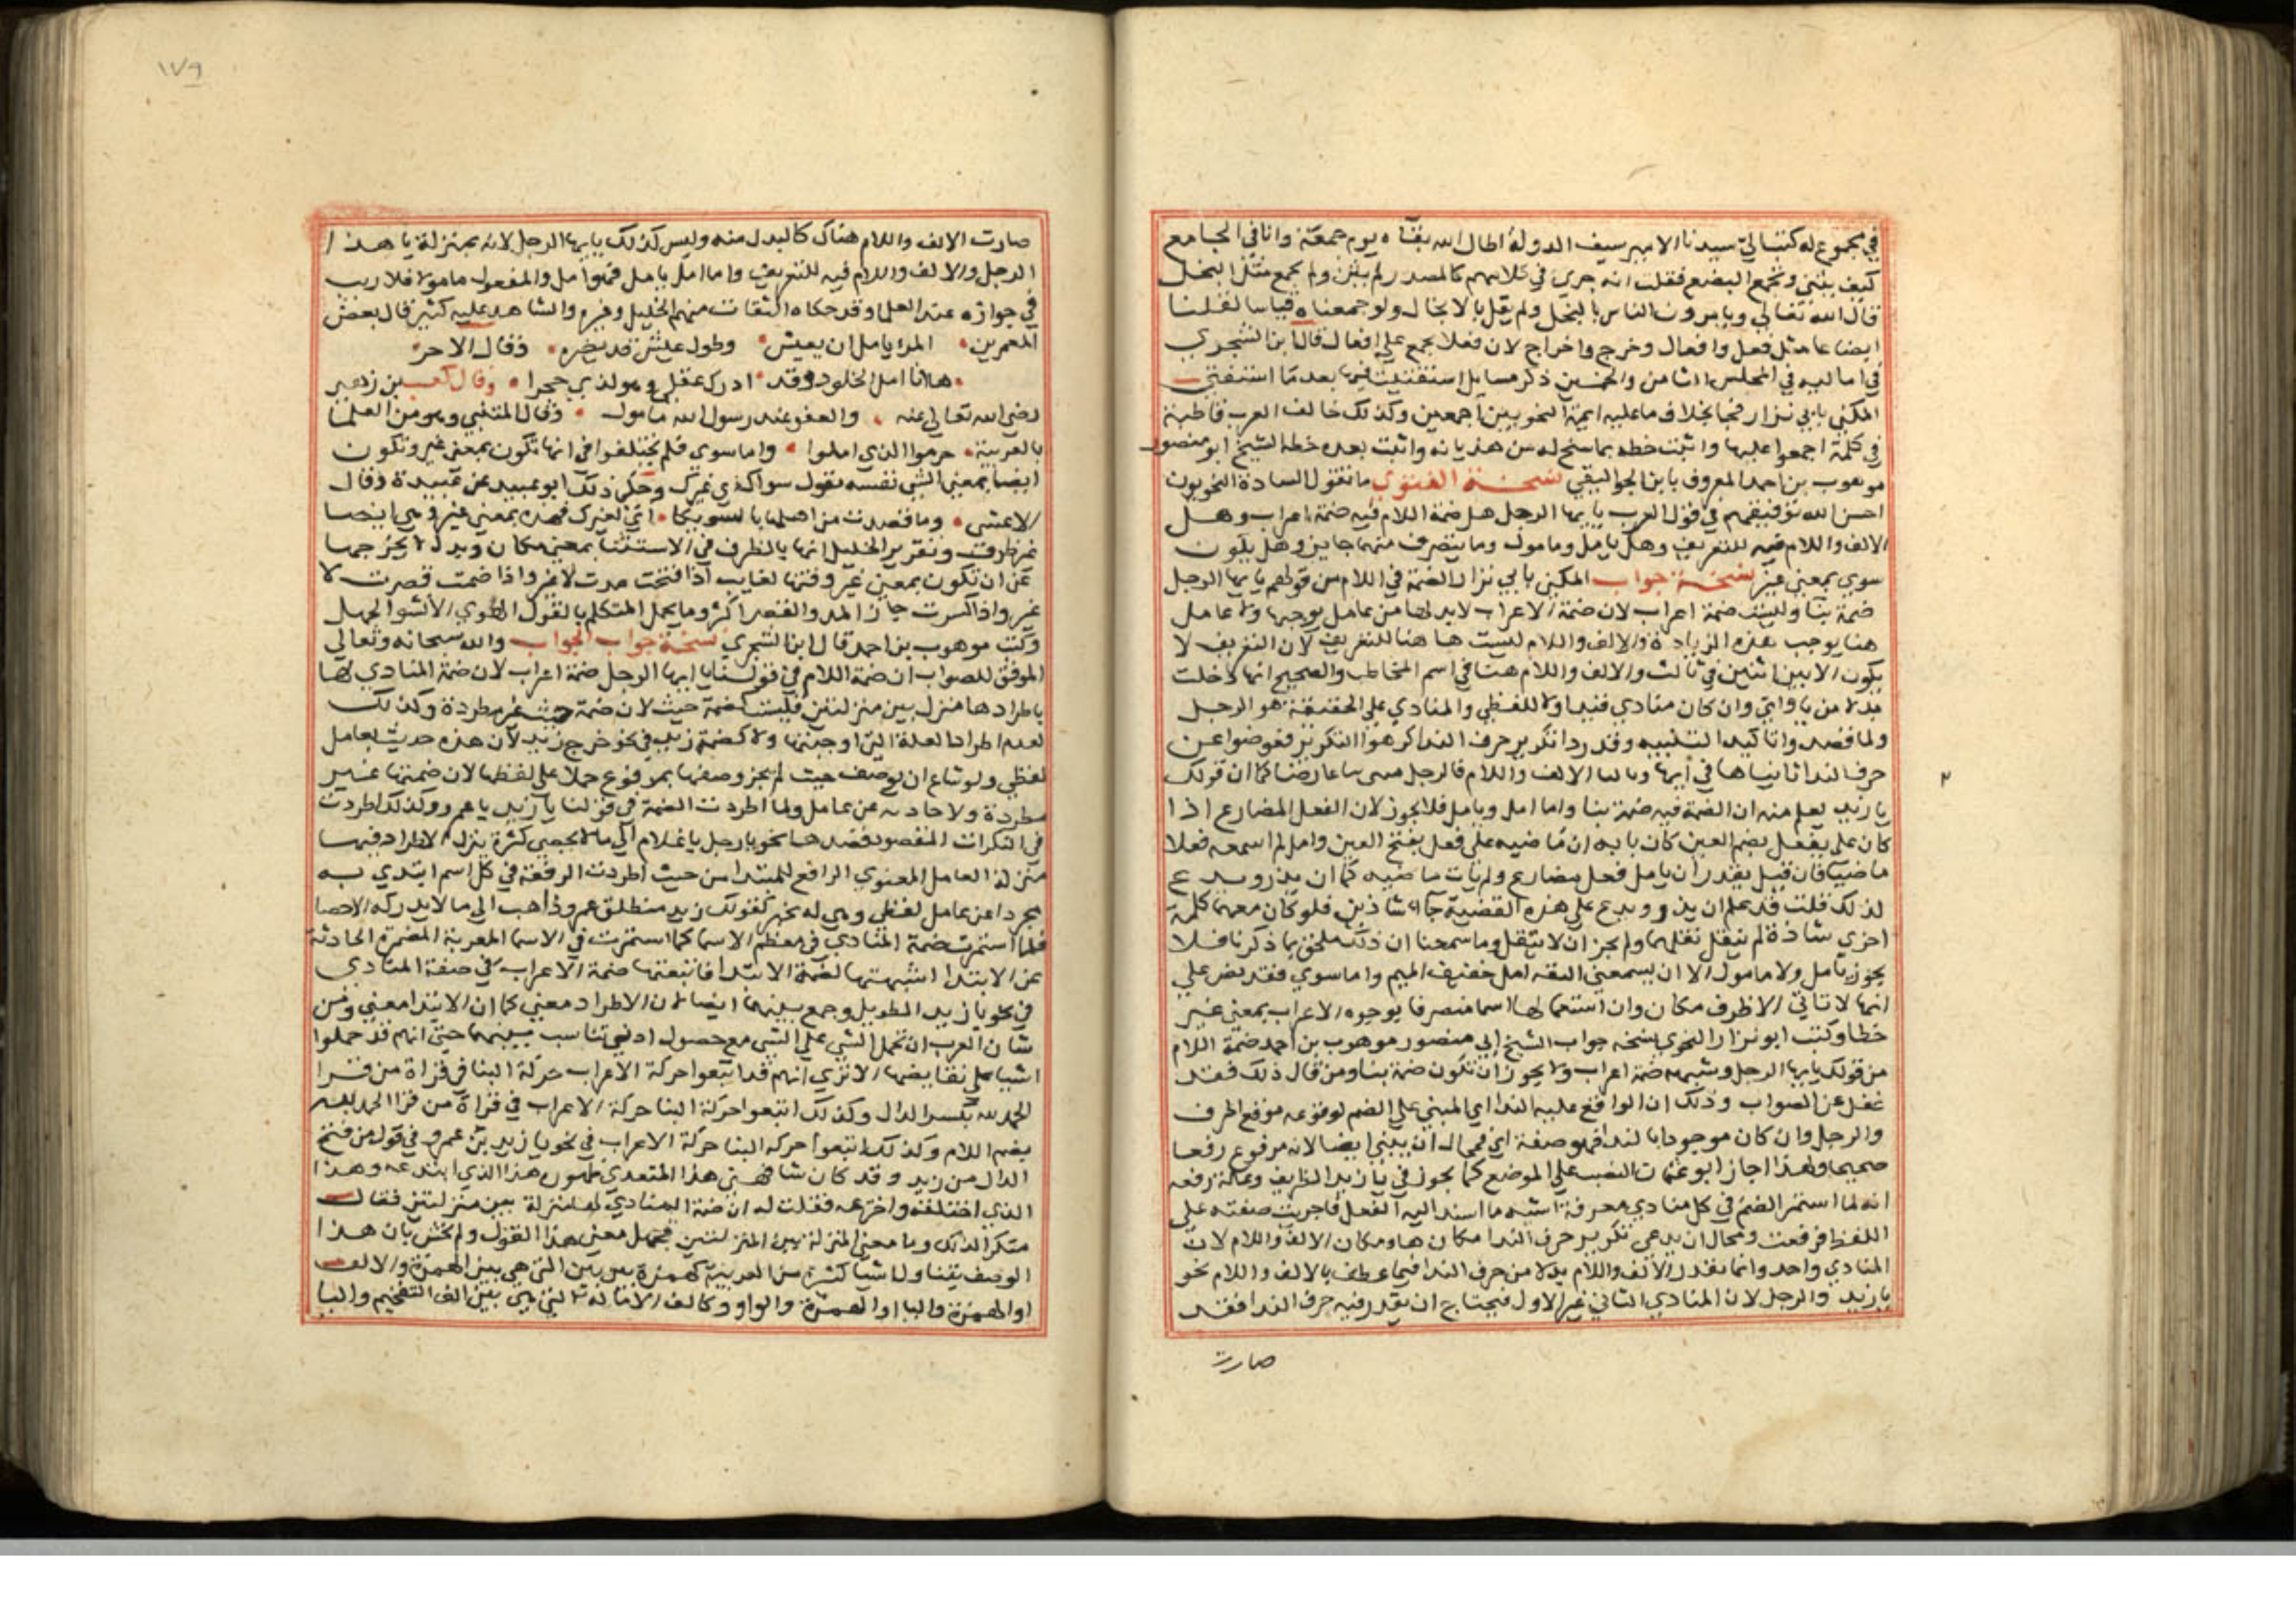 في مجموع له كتب الي سيدنا الامير سيف الدولة اطال الله بقآه يوم جمعة وانا في الجامع
كيف يثني ونجمع البضع فقلت انه جري في كلامهم كالمصدر لم يثن ولم يجمع مثل البخل
قال الله تعالي ويامرون الناس بالبخل ولم يقل بالابخال ولو جمعناه قياسا لقلنا
ابضاعا مثل قفل واقفال وخرج واخراج لان فعلا يجمع علي افعال قال ابن الشجري
في اماليه في المجلس الثامن والخمسين ذكر مسايل استفتيت فيها بعد ما استفتي
المكني بابي نزار فجا بخلاف ما عليه ايمة النحويين اجمعين وكذلك خالف العرب قاطبة
في كلمة اجمعوا عليها واثبت خطه بما سنح له من هذيانه واثبت بعده خطه الشيخ ابو منصور
موهوب بن احمد المعروف بابن الجواليقي نسخة الفتوي ما تقول السادة النحويون
احسن الله توفيقهم في قول العرب يا ايها الرجل هل ضمة اللام فيه ضمة اعراب وهل
الالف واللام فيه للتعريف وهل يامل ومامول وما يتصرف منهما جايز وهل يكون
سوي بمعني غير نسخة جواب المكني بابي نزار الضمة في اللام من قولهم يا ايها الرجل
ضمة بنا وليست ضمة اعراب لان ضمة الاعراب لا بد لها من عامل يوجبها ولا عامل
هنا يوجب هذه الزيادة والالف واللام ليست هاهنا للتعريف لان التعريف لا
يكون الا بين اثنين في ثالث والالف واللام هنا في اسم المخاطب والصحيح انها دخلت
بدلا من يا واي وان كان منادي فنداوه لفظي والمنادي علي الحقيقة هو الرجل
ولما قصدوا تاكيد التنبيه وقدروا تكرير حرف الندا كرهوا التكرير فعوضوا عن
حرف الندا ثانيا ها في ايها وثالثا الالف واللام فالرجل مبني بنا عارضا كما ان قولك
يا زيد يعلم منه ان الضمة فيه ضمة بنا واما امل ويامل فلا يجوز لان الفعل المضارع اذا
كان علي يفعل بضم العين كان بابه ان ماضيه علي فعل بفتح العين وامل لم اسمعه فعلا
ماضيا فان قيل يقدر ان يامل فعل مضارع ولم يات ماضيه كما ان يذر ويدع
لذلك قلت قد علم ان يذر ويدع علي هذه القضية جآا شاذين فلو كان معهما كلمة
اخري شاذة لم تنقل نقلهما ولم يجز ان لا تنقل وما سمعنا ان ذلك ملحق بما ذكرنا فلا
يجوز يامل ولا مامول الا ان يسمعني الثقه امل خفيف الميم واما سوي فقد نص علي
انها لا تاتي الا ظرف مكان وان استعمالها اسما متصرفا بوجوه الاعراب بمعني غير
خطا وكتب ابو نزار النحوي نسخه جواب الشيخ ابي منصور موهوب بن احمد ضمة اللام
من قولك يا ايها الرجل وشبهه ضمة اعراب ولا يجوز ان تكون ضمة بنا ومن قال ذلك فقد
غفل عن الصواب وذلك ان الواقع عليه الندا اي المبني علي الضم لوقوعه موقع الحرف
والرجل وان كان مقصودا بالندا فهو صفة اي فمحال ان يبني ايضا لانه مرفوع رفعا
صحيحا ولهذا اجاز ابو عثمان النصب علي الموضع كما يجوز في يا زيد الظريف وعلة رفعه
انه لما استمر الضم في كل منادي معرفة اشبه ما اسند اليه الفعل فاجريت صفته علي
اللفظ فرفعت ومحال ان يدعي تكرير حرف الندا مكان ها ومكان الالف واللام لان
المنادي واحد وانما يقدر الالف واللام بدلا من حرف الندا فيما عطف بالالف واللام نحو
يا زيد والرجل لان المنادي الثاني غير الاول فيحتاج ان يقدر فيه حرف الندا فقد
صارت
١٧٩
صارت الالف واللام هناك كالبدل منه وليس كذلك يا ايها الرجل لانه بمنزلة يا هذا
الرجل والالف واللام فيه للتعريف واما امل يامل فهو امل والمفعول مامول فلا ريب
في جوازه عند العلما وقد حكاه الثقات منهم الخليل وغيره والشاهد عليه كثير قال بعض
المعمرين المرء يامل ان يعيش وطول عيش قد يضره وقال الاخر
ها انا امل الخلود وقد ادرك عقلي ومولدي حجرا وقال كعب بن زهير
رضي الله تعالي عنه والعفو عند رسول الله مامول وقال المتنبي وهو من العلما
بالعربية حرموا الذي املوا واما سوي فلم يختلفوا في انها تكون بمعني غير وتكون
ايضا بمعني الشي نفسه تقول سواك اي غيرك وحكي ذلك ابو عبيد عن عبيدة وقال
الاعشي وما قصدت من اهلها بالسويكا اي لغيرك فهذه بمعني غير وهي ايضا
غير ظرف وتقرير الخليل انها بالظرف في الاستثنا بمعني مكان وبدل لا يخرجها
عن ان تكون بمعني غير وفتها لغايب اذا فتحت مدت لا غير واذا ضمت قصرت لا
غير واذا كسرت جاز المد والقصر اكثر وما يحمل المتكلم بالقول الهوي الا نشو الجهل
وكتب موهوب بن احمد قال ابن الشجري نسخة جواب الجواب والله سبحانه وتعالي
الموفق للصواب ان ضمة اللام في قولنا يا ايها الرجل ضمة اعراب لان ضمة المنادي لها
باطرادها منزلة بين منزلتين فليست كضمة حيث لان ضمة حيث غير مطردة وكذلك
لعدم اطراد العلة التي اوجبتها ولا كضمة زيد في نحو خرج زيد لان هذه حدثت بعامل
لفظي ولو شاع ان توصف حيث لم يجز وصفها بمرفوع حملا علي لفظها لان ضمتها غير
مطردة ولا حادثه عن عامل ولما اطردت الضمة في قولنا يا زيد يا عمرو وكذلك اطردت
في النكرات المقصود قصدها نحو يا رجل يا غلام الي ما لا يحصي كثرة ينزل الاطراد فيها
منزلة العامل المعنوي الرافع للمبتدا من حيث اطردت الرفعة في كل اسم ابتدي به
مجردا عن عامل لفظي وجي له بخبر كقولك زيد منطلق عمرو ذاهب الي ما لا يدركه الاحصا
فلما استمرت ضمة المنادي في معظم الاسما كما استمرت في الاسما المعربة الضمة الحادثة
عن الابتدا اشبهتها لضمة الابتدا فاتبعتها ضمة الاعراب في صفة المنادي
في نحو يا زيد الطويل وجمع بينهما ايضا لان الاطراد معني كما ان الابتدا معني ومن
شان العرب ان تحمل الشي علي الشي مع حصول ادني تناسب بينهما حتي انهم قد حملوا
اشيا علي نقايضها الا تري انهم قد اتبعوا حركة الاعراب حركة البنا في قراة من قرا
الحمد لله بكسر الدال وكذلك اتبعوا حركة البنا حركة الاعراب في قراة من قرا الحمد لله
بضم اللام وكذلك اتبعوا حركه البنا حركة الاعراب في نحو يا زيد بن عمرو في قول من فتح
الدال من زيد وقد كان شافهني هذا المتعدي طوره هذا الذي ابتدعه وهذا
الذي اختلقه واخترعه فقلت له ان ضمة المنادي لها منزلة بين منزلتين فقال
منكرا لذلك وما معني المنزلة بين المنزلتين فجهل معني هذا القول ولم يخش بان هذا
الوصف يتناول اشيا كثيرة من العربية كهمزة بين بين التي هي بين الهمزة والالف
او الهمزة واليا او الهمزة والواو وكالف الامالة التي هي بين الف التفخيم واليا